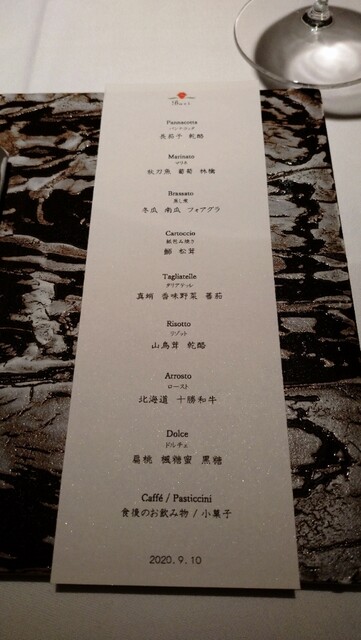 Pannacotta
パンナコッタ
長茄子 乾酪
Marinato
マリネ
秋刀魚 葡萄 林檎
Brassato
蒸し煮
冬瓜 南瓜 フォアグラ
Cartoccio
紙包み焼き
松茸
Tagliatelle
タリアテッレ
真蛸 香味野菜 蕃茄
Risotto
リゾット
山鳥茸 乾酪
Arrosto
ロースト
北海道 十勝和牛
Dolce
ドルチェ
扁桃 楓糖蜜 黒糖
Caffé / Pasticcini
食後のお飲み物 / 小菓子
2020.9.10